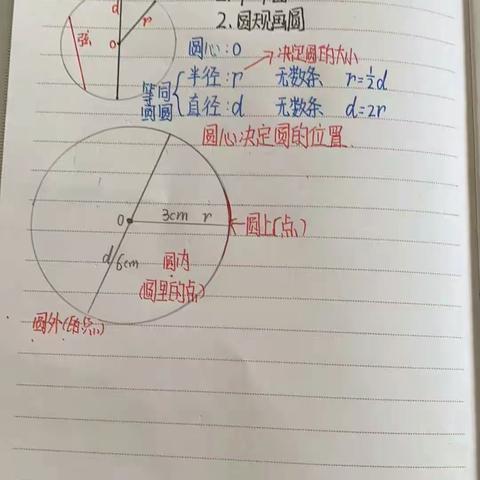 2.圆规画圆
d
r
O
弦
圆心:O
决定圆的大小
等圆 同圆
半径:r 无数条 r=½d
直径:d 无数条 d=2r
圆心决定圆的位置
O 3cm r
圆上(点)
d 6cm
圆内
(圆里的点)
圆外(的点)